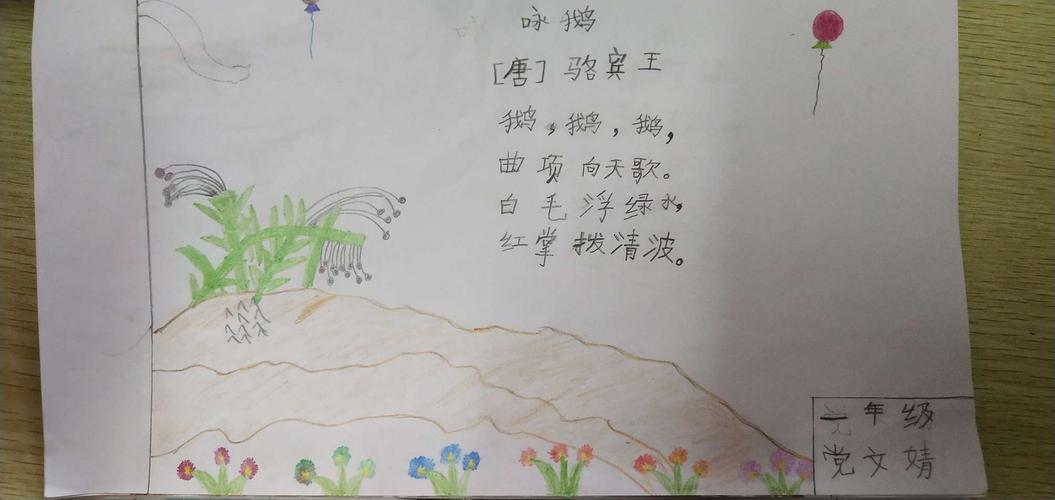 咏鹅
[唐] 骆宾王
鹅,鹅,鹅,
曲项向天歌。
白毛浮绿水,
红掌拨清波。
一年级
党文婧